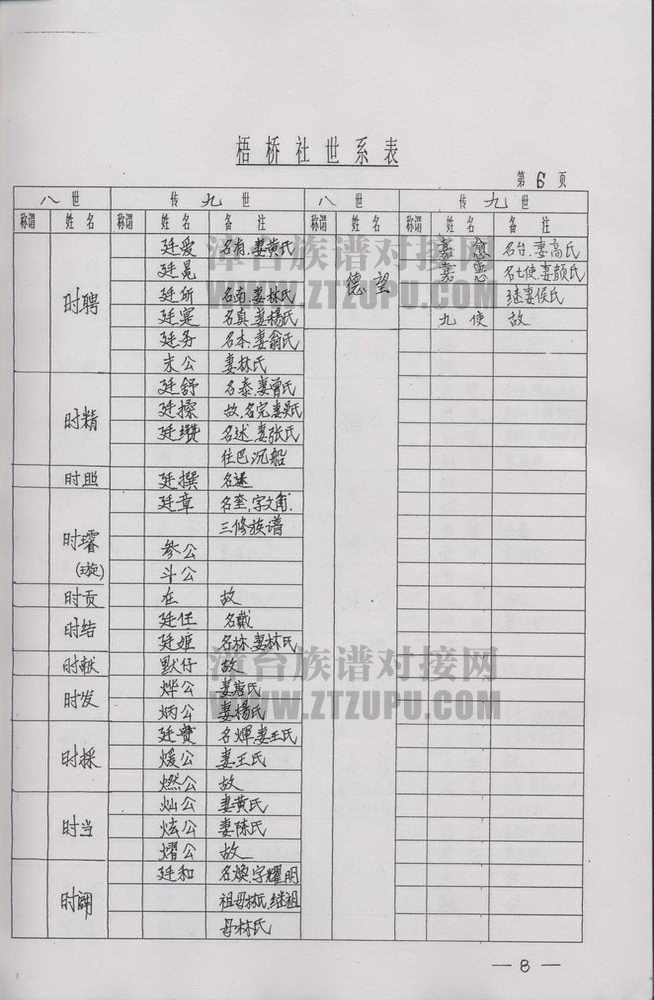 梧桥社世系表
第6页
八世 传九世 八世 传九世
称谓 姓名 称谓 姓名 备注 称谓 姓名 称谓 姓名 备注
时聘 廷爱 名有.妻黄氏
廷晃
廷所 名南.妻林氏
廷寔 名真.妻楊氏
廷务 名本.妻翁氏
末公 妻林氏
时精 廷舒 名泰.妻曾氏
廷操 故.名完妻吴氏
廷瓒 名述.妻张氏
往巴沉船
时照 廷撰 名遥
时璿(璇) 廷章 名奎.字文角.
三修族谱
参公
斗公
时贡 在 故
时结 廷任 名戴
廷姬 名栋.妻林氏
时献 默仔 故
时发 烨公 妻唐氏
炳公 妻楊氏
时採 廷贵 名煇.妻王氏
煖公 妻王氏
燃公 故
时当 灿公 妻黄氏
炫公 妻陈氏
熠公 故
廷和 名焕.字耀明
祖母林氏.继祖
母林氏
德望 嘉愈 名台.妻高氏
嘉惠 名七使.妻颜氏
继妻侯氏
九使 故
漳台族谱对接网
WWW.ZTZUPU.COM
漳台族谱对接网
WWW.ZTZUPU.COM
— 8 —